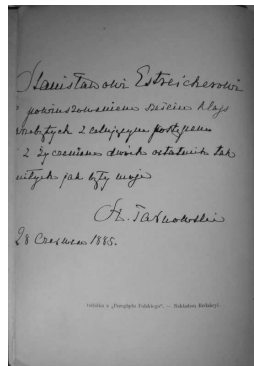 Stanisławowi Estreicherowi
z powinszowaniem sześciu klas
odbytych z celującym postępem
i z życzeniem dwóch ostatnich tak
miłych jak były moje
St. Tarnowski
28 Czerwca 1885.
Odbitka z „Przeglądu Polskiego". — Nakładem Redakcyi.